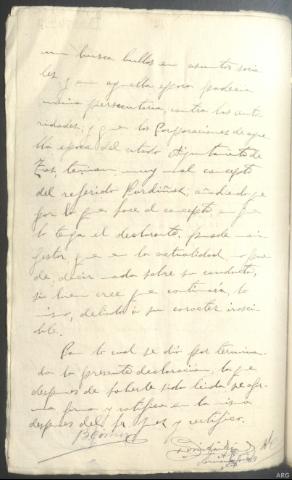 un busca bullas en asuntos socia
les y en aquella epoca padecia
mania persecutoria contra las auto
ridades, y que las Corporaciones de aque
lla epoca del citado Ayuntamiento de
Zas, tenian muy mal concepto
del referido Pardiñas, añadiendo que
por lo que hace al concepto en que
lo tenga el declarante, puede
que en la actualidad no pue
de decir nada sobre su conducta,
si bien cree que continúa lo
mismo, debido á su caracter irasci
ble.
Con lo cual se dio por termina
da la presente declaracion, la que
despues de haberle sido leida se afir
ma, firma y ratifica en la misma
despues del Sr Juez y certifico.
ARG